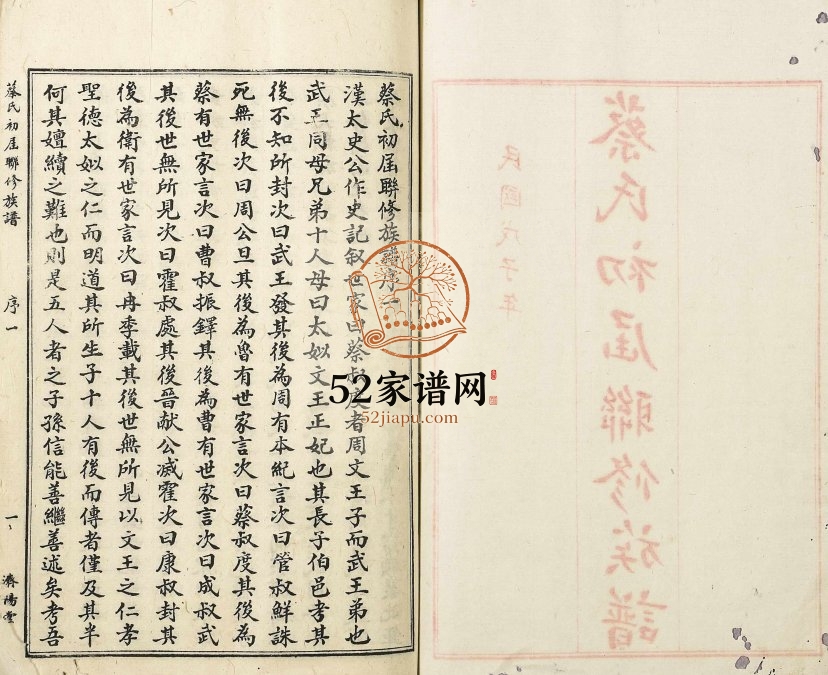 蔡氏初屆聯修族譜
民國戊子年
蔡氏初屆聯修族譜序一
漢太史公作史記叙世家曰蔡叔度者周文王子而武王弟也
武王同母兄弟十人母曰太姒文王正妃也其長子伯邑考其
後不知所封次曰武王發其後為周有本紀言次曰管叔鮮誅
死無後次曰周公旦其後為魯有世家言次曰蔡叔度其後為
蔡有世家言次曰曹叔振鐸其後為曹有世家言次曰成叔武
其後世無所見次曰霍叔處其後晉献公滅霍次曰康叔封其
後為衛有世家言次曰冉季載其後世無所見以文王之仁孝
聖德太姒之仁而明道其所生子十人有後而傳者僅及其半
何其嬗續之難也則是五人者之子孫信能善繼善述矣考吾
蔡氏初屆聯修族譜 序一 一 濟陽堂
52家谱网
52jiapu.com